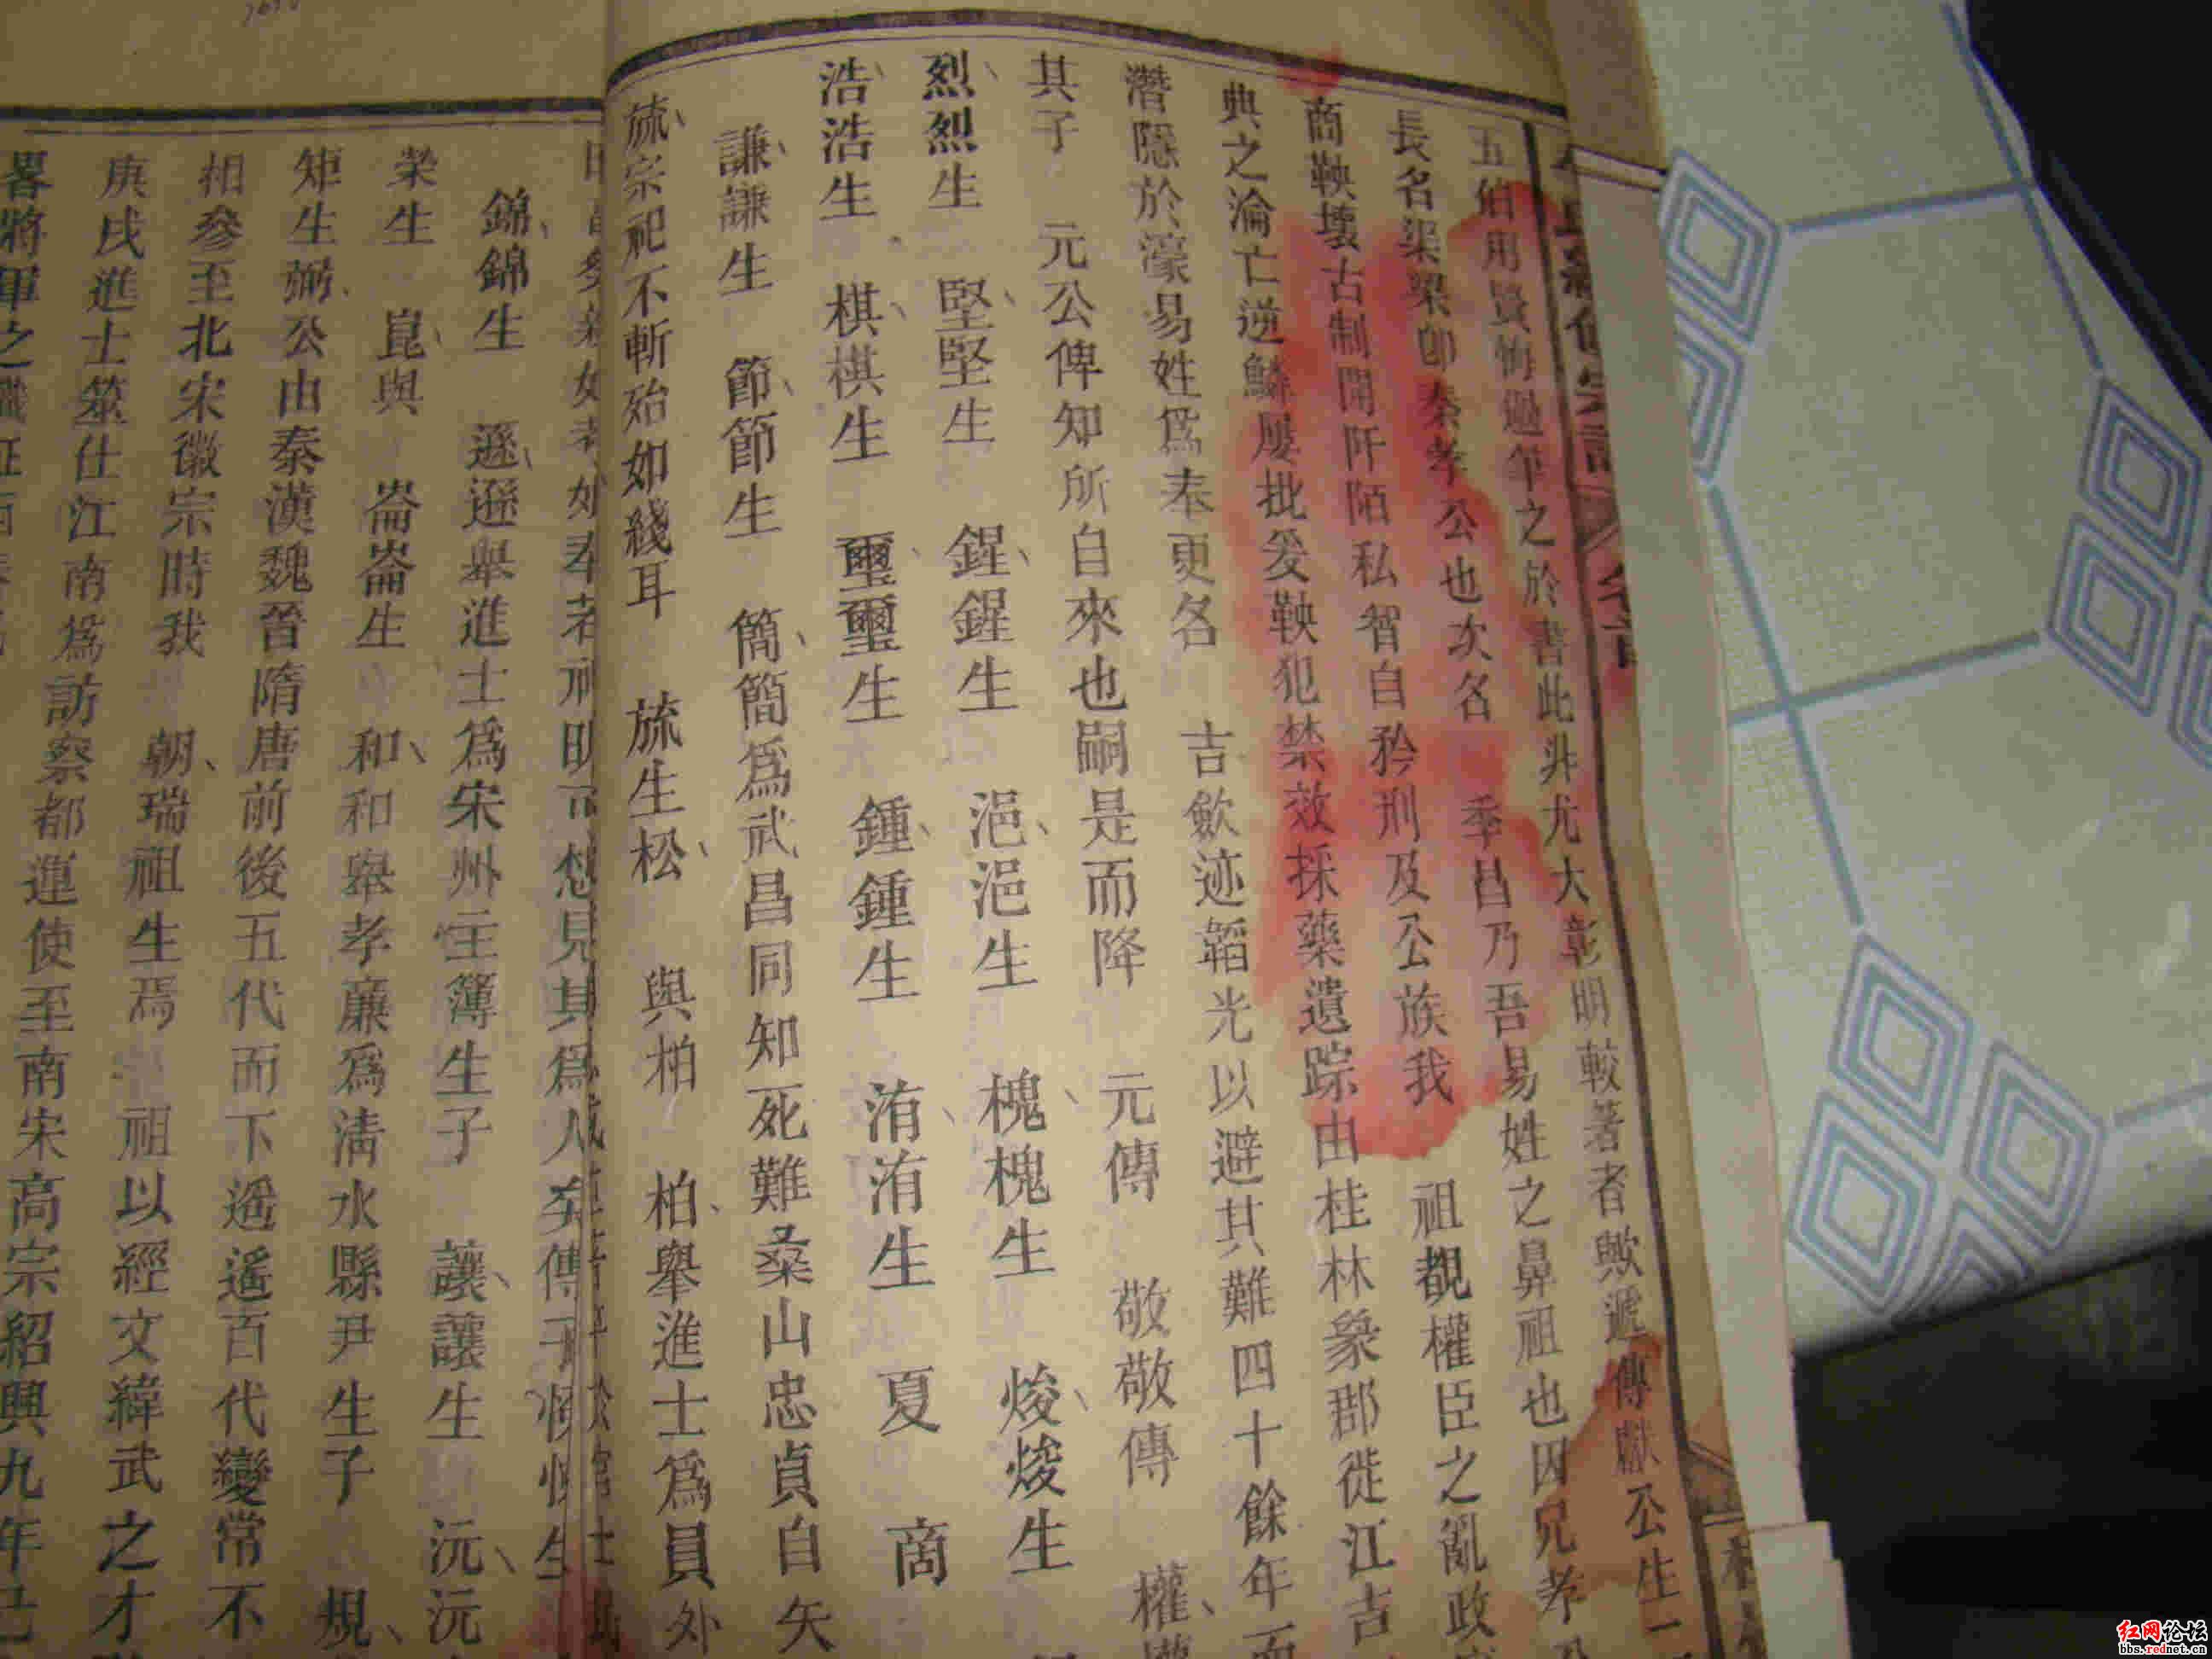 五伯用賢悔過筆之於書此非尤大彰明較著者歟遞傳獻公生
長名渠梁卽秦孝公也次名 季昌乃吾易姓之鼻祖也因兄孝
商鞅壞古制開阡陌私智自矜刑及公族我 祖覩權臣之亂政
典之淪亡逆鱗屢批爰鞅犯禁效採藥遺踪由桂林象郡徙江吉
潛隱於濠易姓爲奉更名 吉歛迹韜光以避其難四十餘年而
其子 元公俾知所自來也嗣是而降 元傳 敬敬傳 權權
烈烈生 堅堅生 鍟鍟生 浥浥生 槐槐生 焌焌生
浩浩生 棋棋生 璽璽生 鍾鍾生 洧洧生 夏 商
謙謙生 節節生 簡簡爲武昌同知死難桑山忠貞自矢
旒宗祀不斬殆如綫耳 旒生松 與柏 柏舉進士爲員外
錦錦生 遜遜舉進士爲宋州主簿生子 讓讓生 沅沅
榮生 崑與 崙崙生 和和舉孝廉爲清水縣尹生子 規
矩生弼公由秦漢魏晉隋唐前後五代而下遥遥百代變常不
相參至北宋徽宗時我 朝瑞祖生焉 祖以經文緯武之才
庚戌進士筮仕江南爲訪察都運使至南宋高宗紹興九年己
畧將軍之職
红网论坛
bbs.rednet.cn